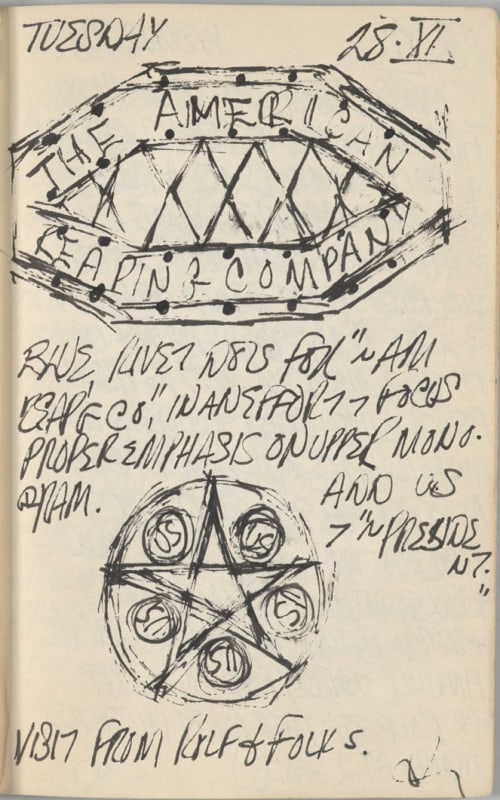 TUESDAY 28·XI
THE AMERICAN
REAPING COMPANY
BLUE RIVET DOTS FOR "~ AM
REAP'G CO", IN AN EFFORT 7 FOCUS
PROPER EMPHASIS ON UPPER MONO-
GRAM.
AND US
7 "~ PRESIDE
NT."
US US
US US
US
VISIT FROM ROLF & FOLKS.